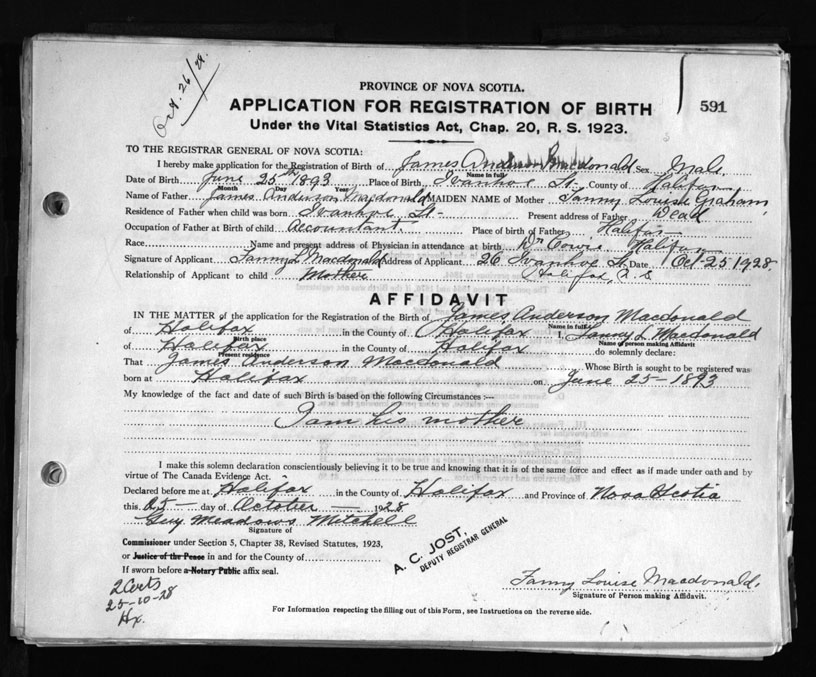 Oct. 26/28.
PROVINCE OF NOVA SCOTIA.
APPLICATION FOR REGISTRATION OF BIRTH
591
Under the Vital Statistics Act, Chap. 20, R. S. 1923.
TO THE REGISTRAR GENERAL OF NOVA SCOTIA:
I hereby make application for the Registration of Birth of James Anderson Macdonald Sex Male
Name in full
Date of Birth June 25th 1893 Place of Birth Ivanhoe St. County of Halifax
Month Day Year
Name of Father James Anderson Macdonald MAIDEN NAME of Mother Fanny Louise Graham
Residence of Father when child was born Ivanhoe St- Present address of Father Dead
Occupation of Father at Birth of child Accountant. Place of birth of Father Halifax
Race Name and present address of Physician in attendance at birth Dr Cowie Halifax
Signature of Applicant Fanny L Macdonald Address of Applicant 26 Ivanhoe St. Date Oct-25 1928.
Relationship of Applicant to child Mother Halifax, N.S
AFFIDAVIT
IN THE MATTER of the application for the Registration of the Birth of James Anderson Macdonald
Name in full
of Halifax in the County of Halifax I, Fanny L. Macdonald
Birth place Name of person making Affidavit
of Halifax in the County of Halifax do solemnly declare:
Present residence
That James Anderson Macdonald Whose Birth is sought to be registered was
born at Halifax on June 25-1893
My knowledge of the fact and date of such Birth is based on the following Circumstances :—
I am his mother
I make this solemn declaration conscientiously believing it to be true and knowing that it is of the same force and effect as if made under oath and by
virtue of The Canada Evidence Act.
Declared before me at Halifax in the County of Halifax and Province of Nova Scotia
this 25- day of October 1928
Guy Meadows Mitchell
Signature of
Commissioner under Section 5, Chapter 38, Revised Statutes, 1923,
or Justice of the Peace in and for the County of
If sworn before a Notary Public affix seal.
A. C. JOST,
DEPUTY REGISTRAR GENERAL
Fanny Louise Macdonald.
Signature of Person making Affidavit.
2 Certs
25-10-28
Hx.
For Information respecting the filling out of this Form, see Instructions on the reverse side.